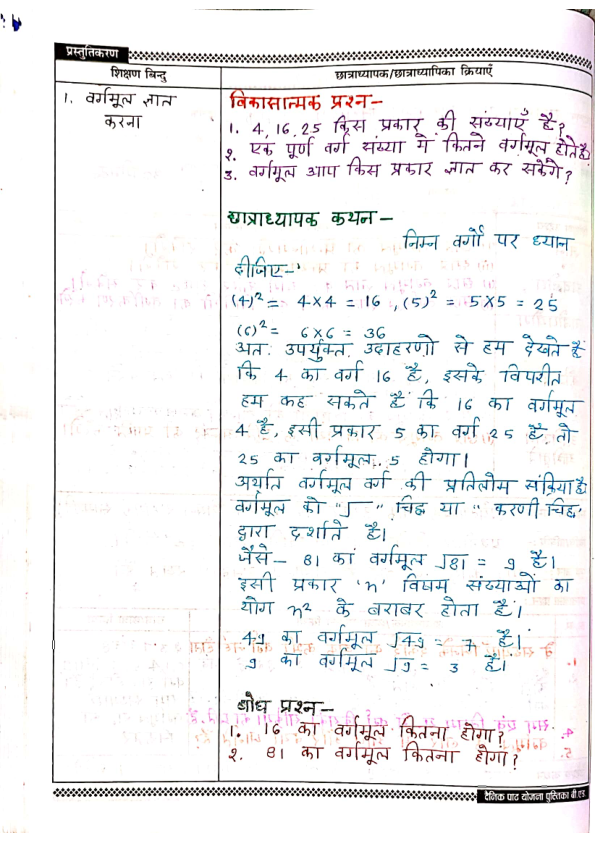 प्रस्तुतिकरण
शिक्षण बिन्दु
छात्राध्यापक/छात्राध्यापिका क्रियाएँ
1. वर्गमूल ज्ञात
करना
विकासात्मक प्रश्न–
1. 4, 16, 25 किस प्रकार की संख्याएँ है?
2. एक पूर्ण वर्ग संख्या में कितने वर्गमूल होते है।
3. वर्गमूल आप किस प्रकार ज्ञात कर सकेंगे?
छात्राध्यापक कथन –
निम्न वर्गों पर ध्यान
दीजिए–
(4)² = 4×4 = 16, (5)² = 5×5 = 25
(6)² = 6×6 = 36
अतः उपर्युक्त उदाहरणो से हम देखते है
कि 4 का वर्ग 16 है, इसके विपरीत
हम कह सकते हैं कि 16 का वर्गमूल
4 है, इसी प्रकार 5 का वर्ग 25 है तो
25 का वर्गमूल 5 होगा।
अर्थात वर्गमूल वर्ग की प्रतिलोम संक्रिया है
वर्गमूल को "√" चिह्न या " करणी चिह्न'
द्वारा दर्शाते है।
जैसे– 81 का वर्गमूल √81 = 9 है।
इसी प्रकार 'n' विषम संख्याओं का
योग n² के बराबर होता है।
49 का वर्गमूल √49 = 7 है।
9 का वर्गमूल √9 = 3 है।
बोध प्रश्न–
1. 16 का वर्गमूल कितना होगा?
2. 81 का वर्गमूल कितना होगा?
दैनिक पाठ योजना पुस्तिका बी.एड.